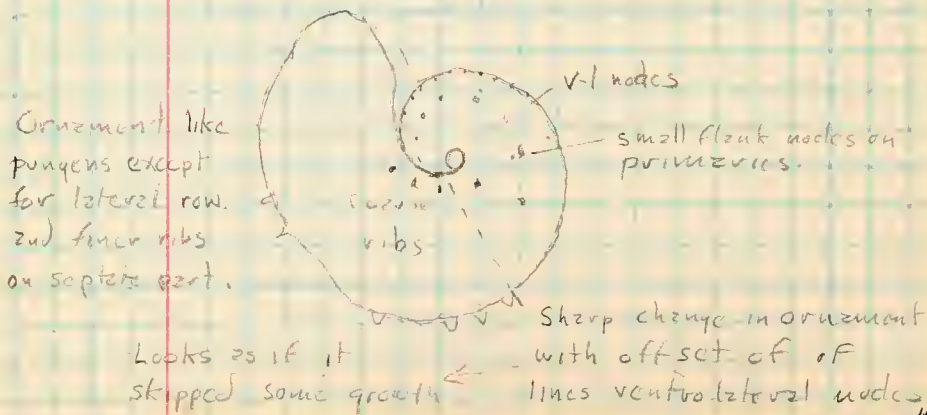 v-l nodes
small flank nodes on
primaries.
Ornament like
pungens except
for lateral row.
and finer ribs
on septate part.
ribs
Sharp change in ornament
with offset of of
lines ventrolateral nodes
Looks as if it
skipped some growth